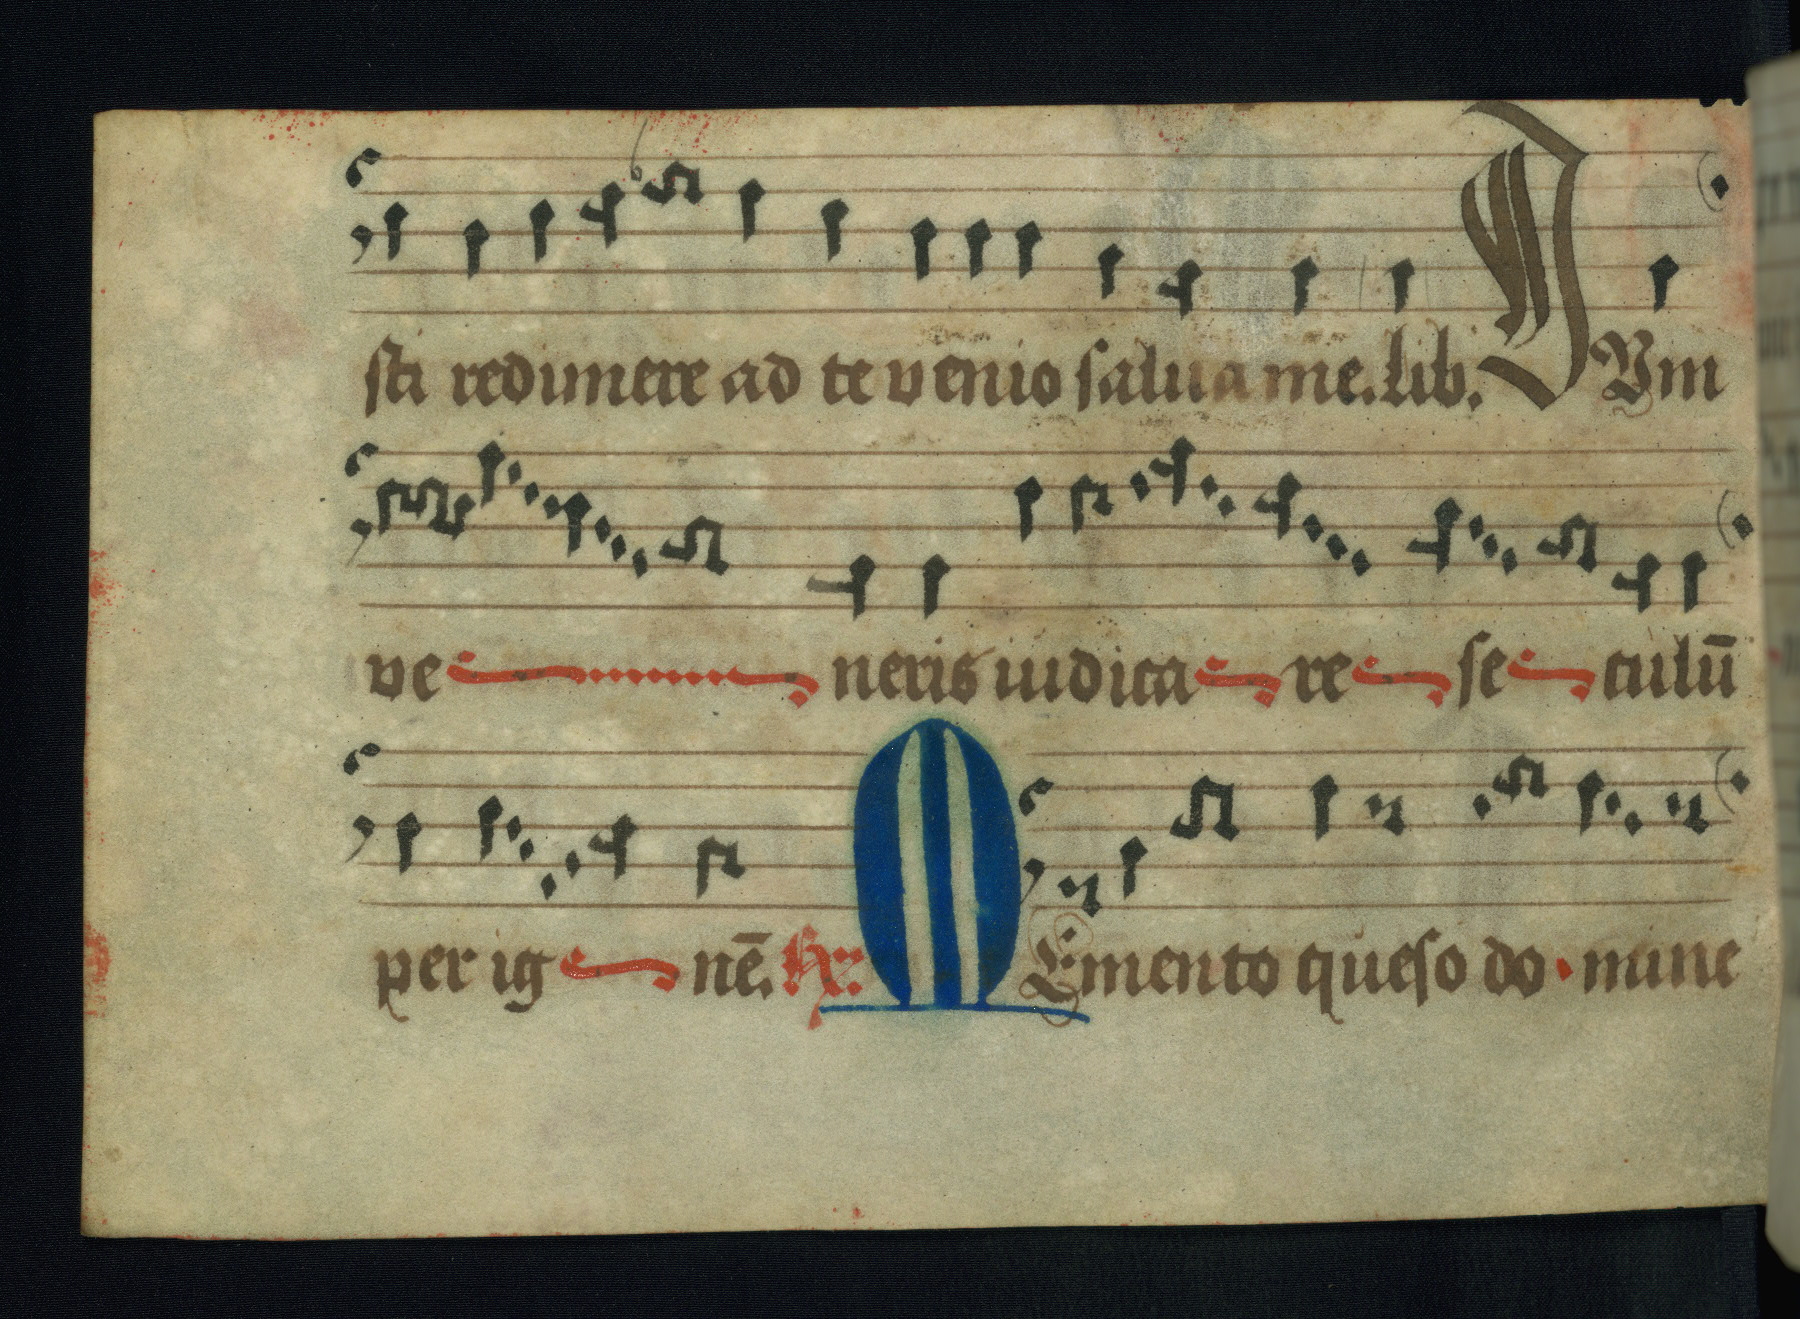 sti redimere ad te venio salua me. lib. DVm
ve neris iudica re se culū
per ig nē. Rx: MEmento queso do mine